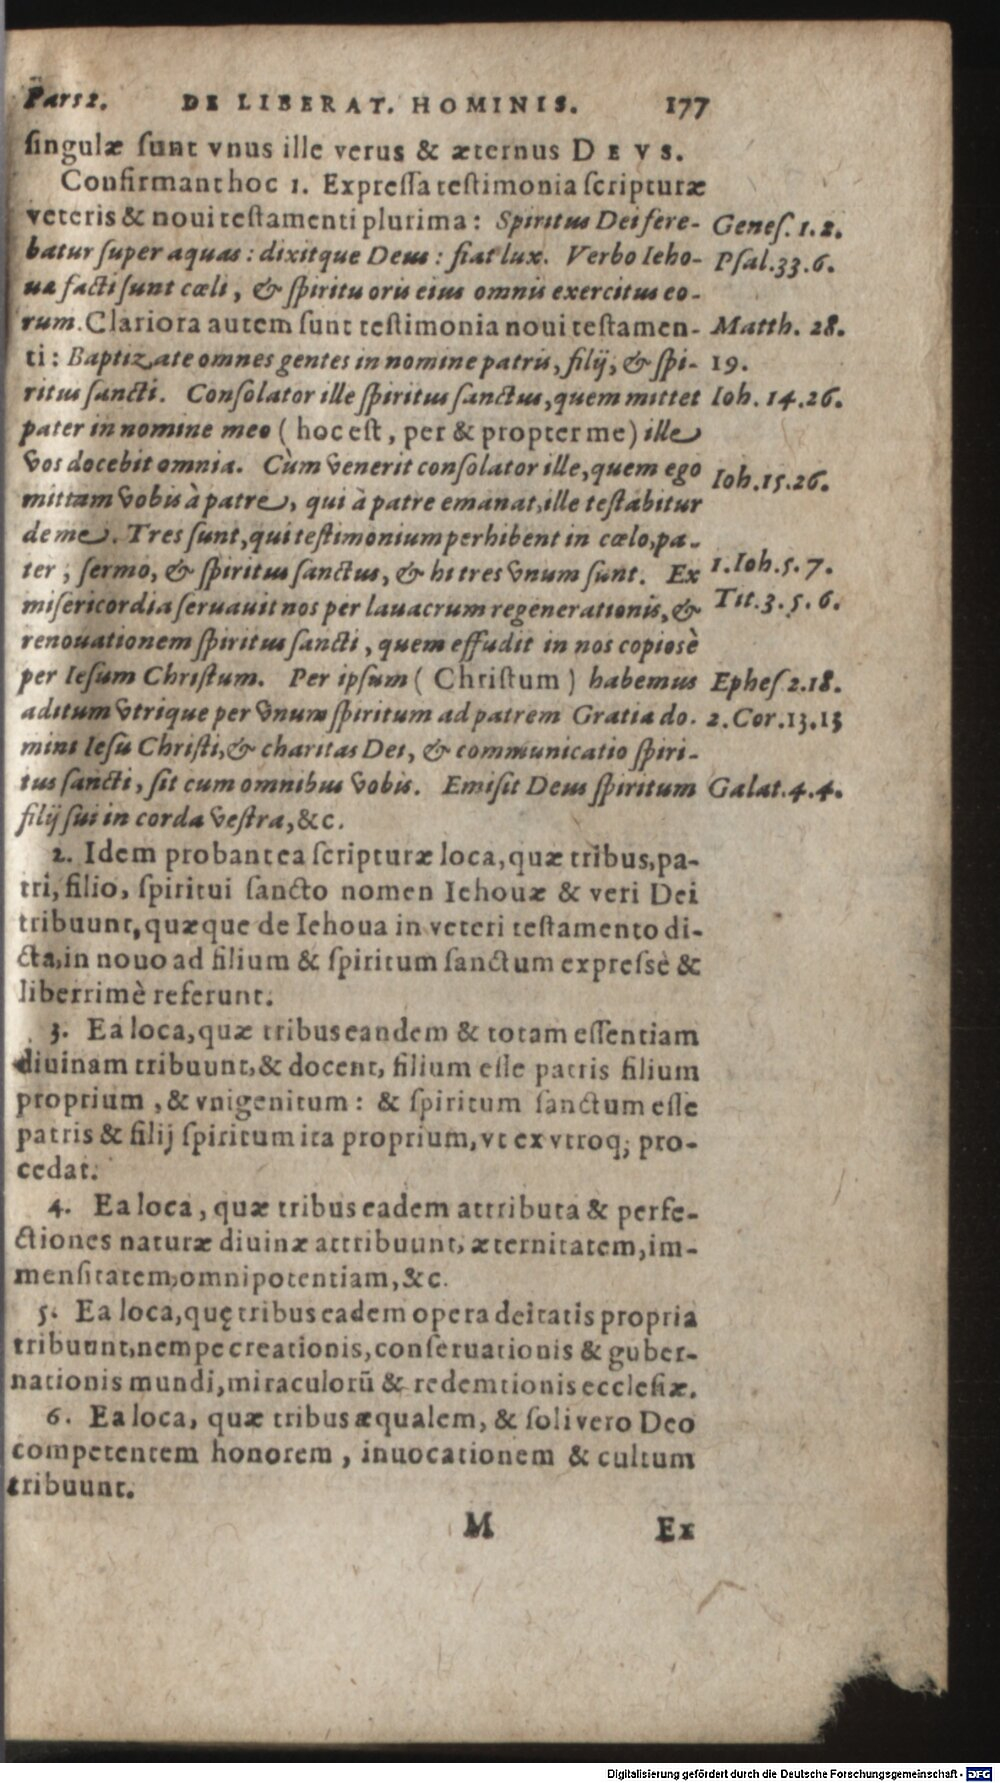 Pars 2. DE LIBERAT. HOMINIS. 177
ſingulæ ſunt vnus ille verus & æternus DEVS.
Confirmant hoc 1. Expreſſa teſtimonia ſcripturæ
veteris & noui teſtamenti plurima: Spiritus Dei fere- Geneſ. 1.2.
batur ſuper aquas: dixitque Deus: fiat lux. Verbo Ieho- Pſal.33.6.
ua facti ſunt cœli, & ſpiritu oris eius omnis exercitus eo-
rum. Clariora autem ſunt teſtimonia noui teſtamen- Matth. 28.
ti: Baptizate omnes gentes in nomine patris, filij, & ſpi- 19.
ritus ſancti. Conſolator ille ſpiritus ſanctus, quem mittet Ioh. 14.26.
pater in nomine meo (hoc eſt, per & propter me) ille
vos docebit omnia. Cùm venerit conſolator ille, quem ego
mittam vobis à patre, qui à patre emanat, ille teſtabitur Ioh.15.26.
de me. Tres ſunt, qui teſtimonium perhibent in cœlo, pa-
ter, ſermo, & ſpiritus ſanctus, & hi tres vnum ſunt. Ex 1.Ioh.5.7.
miſericordia ſeruauit nos per lauacrum regenerationis, & Tit.3.5.6.
renouationem ſpiritus ſancti, quem effudit in nos copiosè
per Ieſum Chriſtum. Per ipſum (Chriſtum) habemus Epheſ 2.18.
aditum vtrique per vnum ſpiritum ad patrem Gratia do- 2.Cor.13.13
mini Ieſu Chriſti, & charitas Dei, & communicatio ſpiri-
tus ſancti, ſit cum omnibus vobis. Emiſit Deus ſpiritum Galat.4.4.
filij ſui in corda veſtra, &c.
2. Idem probant ea ſcripturæ loca, quæ tribus, pa-
tri, filio, ſpiritui ſancto nomen Iehouæ & veri Dei
tribuunt, quæque de Iehoua in veteri teſtamento di-
cta, in nouo ad filium & ſpiritum ſanctum expreſsè &
liberrimè referunt.
3. Ea loca, quæ tribus eandem & totam eſſentiam
diuinam tribuunt, & docent, filium eſſe patris filium
proprium, & vnigenitum: & ſpiritum ſanctum eſſe
patris & filij ſpiritum ita proprium, vt ex vtroq; pro-
cedat.
4. Ea loca, quæ tribus eadem attributa & perfe-
ctiones naturæ diuinæ attribuunt, æternitatem, im-
menſitatem, omnipotentiam, &c.
5. Ea loca, quę tribus eadem opera deitatis propria
tribuunt, nempe creationis, conſeruationis & guber-
nationis mundi, miraculorũ & redemtionis eccleſiæ.
6. Ea loca, quæ tribus æqualem, & ſoli vero Deo
competentem honorem, inuocationem & cultum
tribuunt.
M Ex
Digitalisierung gefördert durch die Deutsche Forschungsgemeinschaft - DFG